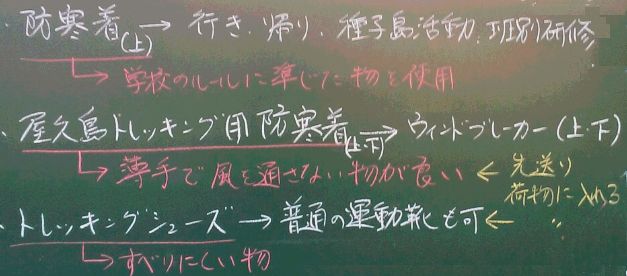 ・防寒着(上)→行き.帰り、種子島活動、班別研修
↳学校のルールに準じた物を使用
・屋久島トレッキング用防寒着(上・下)→ウィンドブレーカー(上・下)
↳薄手で風を通さない物が良い ← 先送り荷物に入れる
・トレッキングシューズ→普通の運動靴も可← 〃
↳すべりにくい物